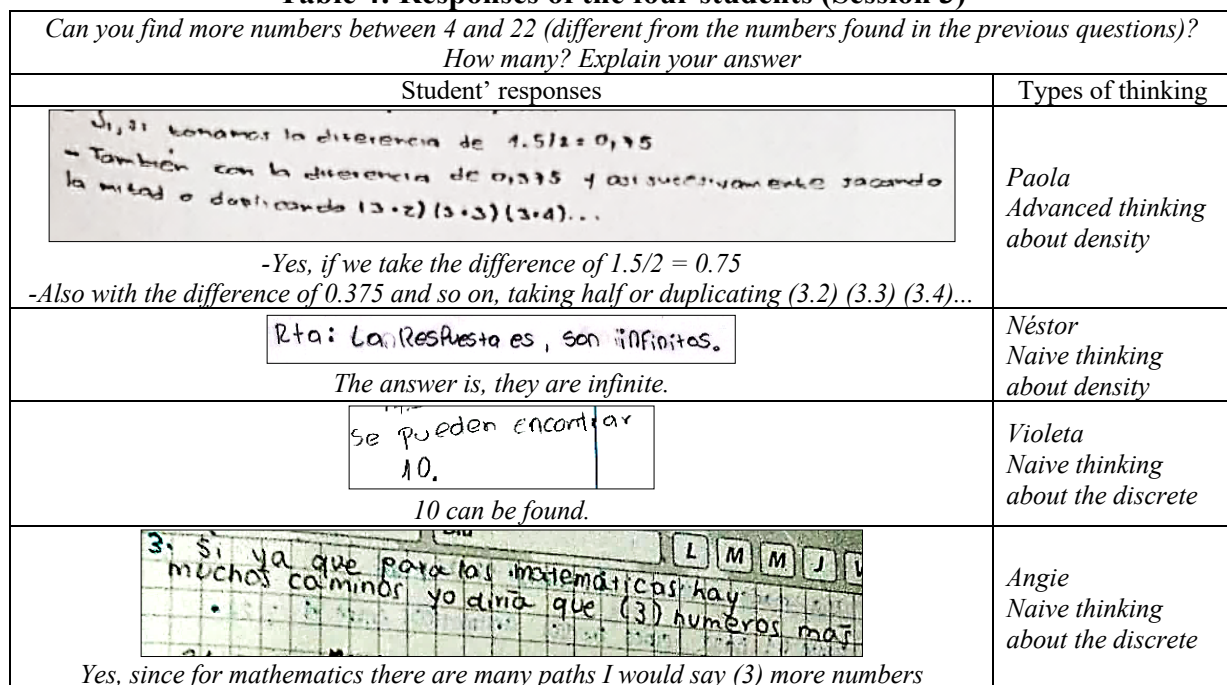 Table 4: Responses of the four students (Session 3)
Can you find more numbers between 4 and 22 (different from the numbers found in the previous questions)?
How many? Explain your answer
Student' responses
Types of thinking
Si, si tomamos la diferencia de 1.5/2 = 0,75
- También con la diferencia de 0,375 y asi sucesivamente sacando
la mitad o duplicando (3·2) (3·3) (3·4)...
-Yes, if we take the difference of 1.5/2 = 0.75
-Also with the difference of 0.375 and so on, taking half or duplicating (3.2) (3.3) (3.4)...
Paola
Advanced thinking
about density
Rta: La Respuesta es, son infinitos.
The answer is, they are infinite.
Néstor
Naive thinking
about density
se pueden encontrar
10.
10 can be found.
Violeta
Naive thinking
about the discrete
3. Si ya que para las matemáticas hay
muchos caminos yo diria que (3) numeros mas
L M M J V
Yes, since for mathematics there are many paths I would say (3) more numbers
Angie
Naive thinking
about the discrete